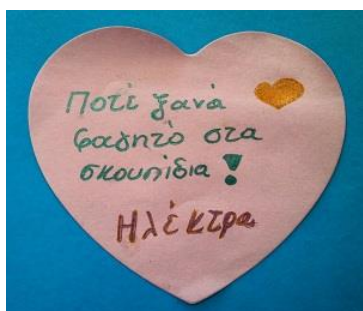 Ποτέ ξανά
φαγητό στα
σκουπίδια!
Ηλέκτρα